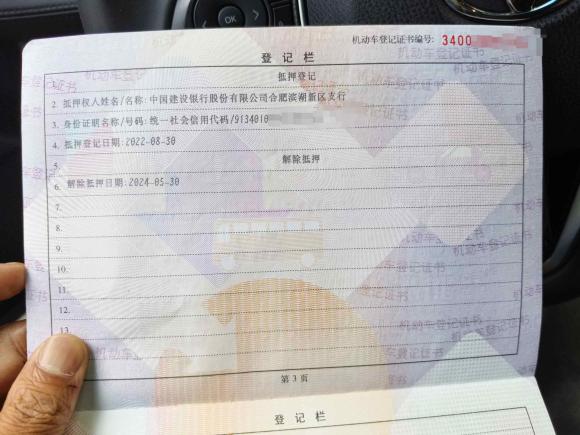 OK
机动车登记证书编号: 3400
登记栏
抵押登记
2. 抵押权人姓名/名称: 中国建设银行股份有限公司合肥滨湖新区支行
3. 身份证明名称/号码: 统一社会信用代码/9134010
4. 抵押登记日期: 2022-08-30
5. 解除抵押
6. 解除抵押日期: 2024-05-30
7.
8.
9.
10.
11.
12.
13
第3页
登记栏